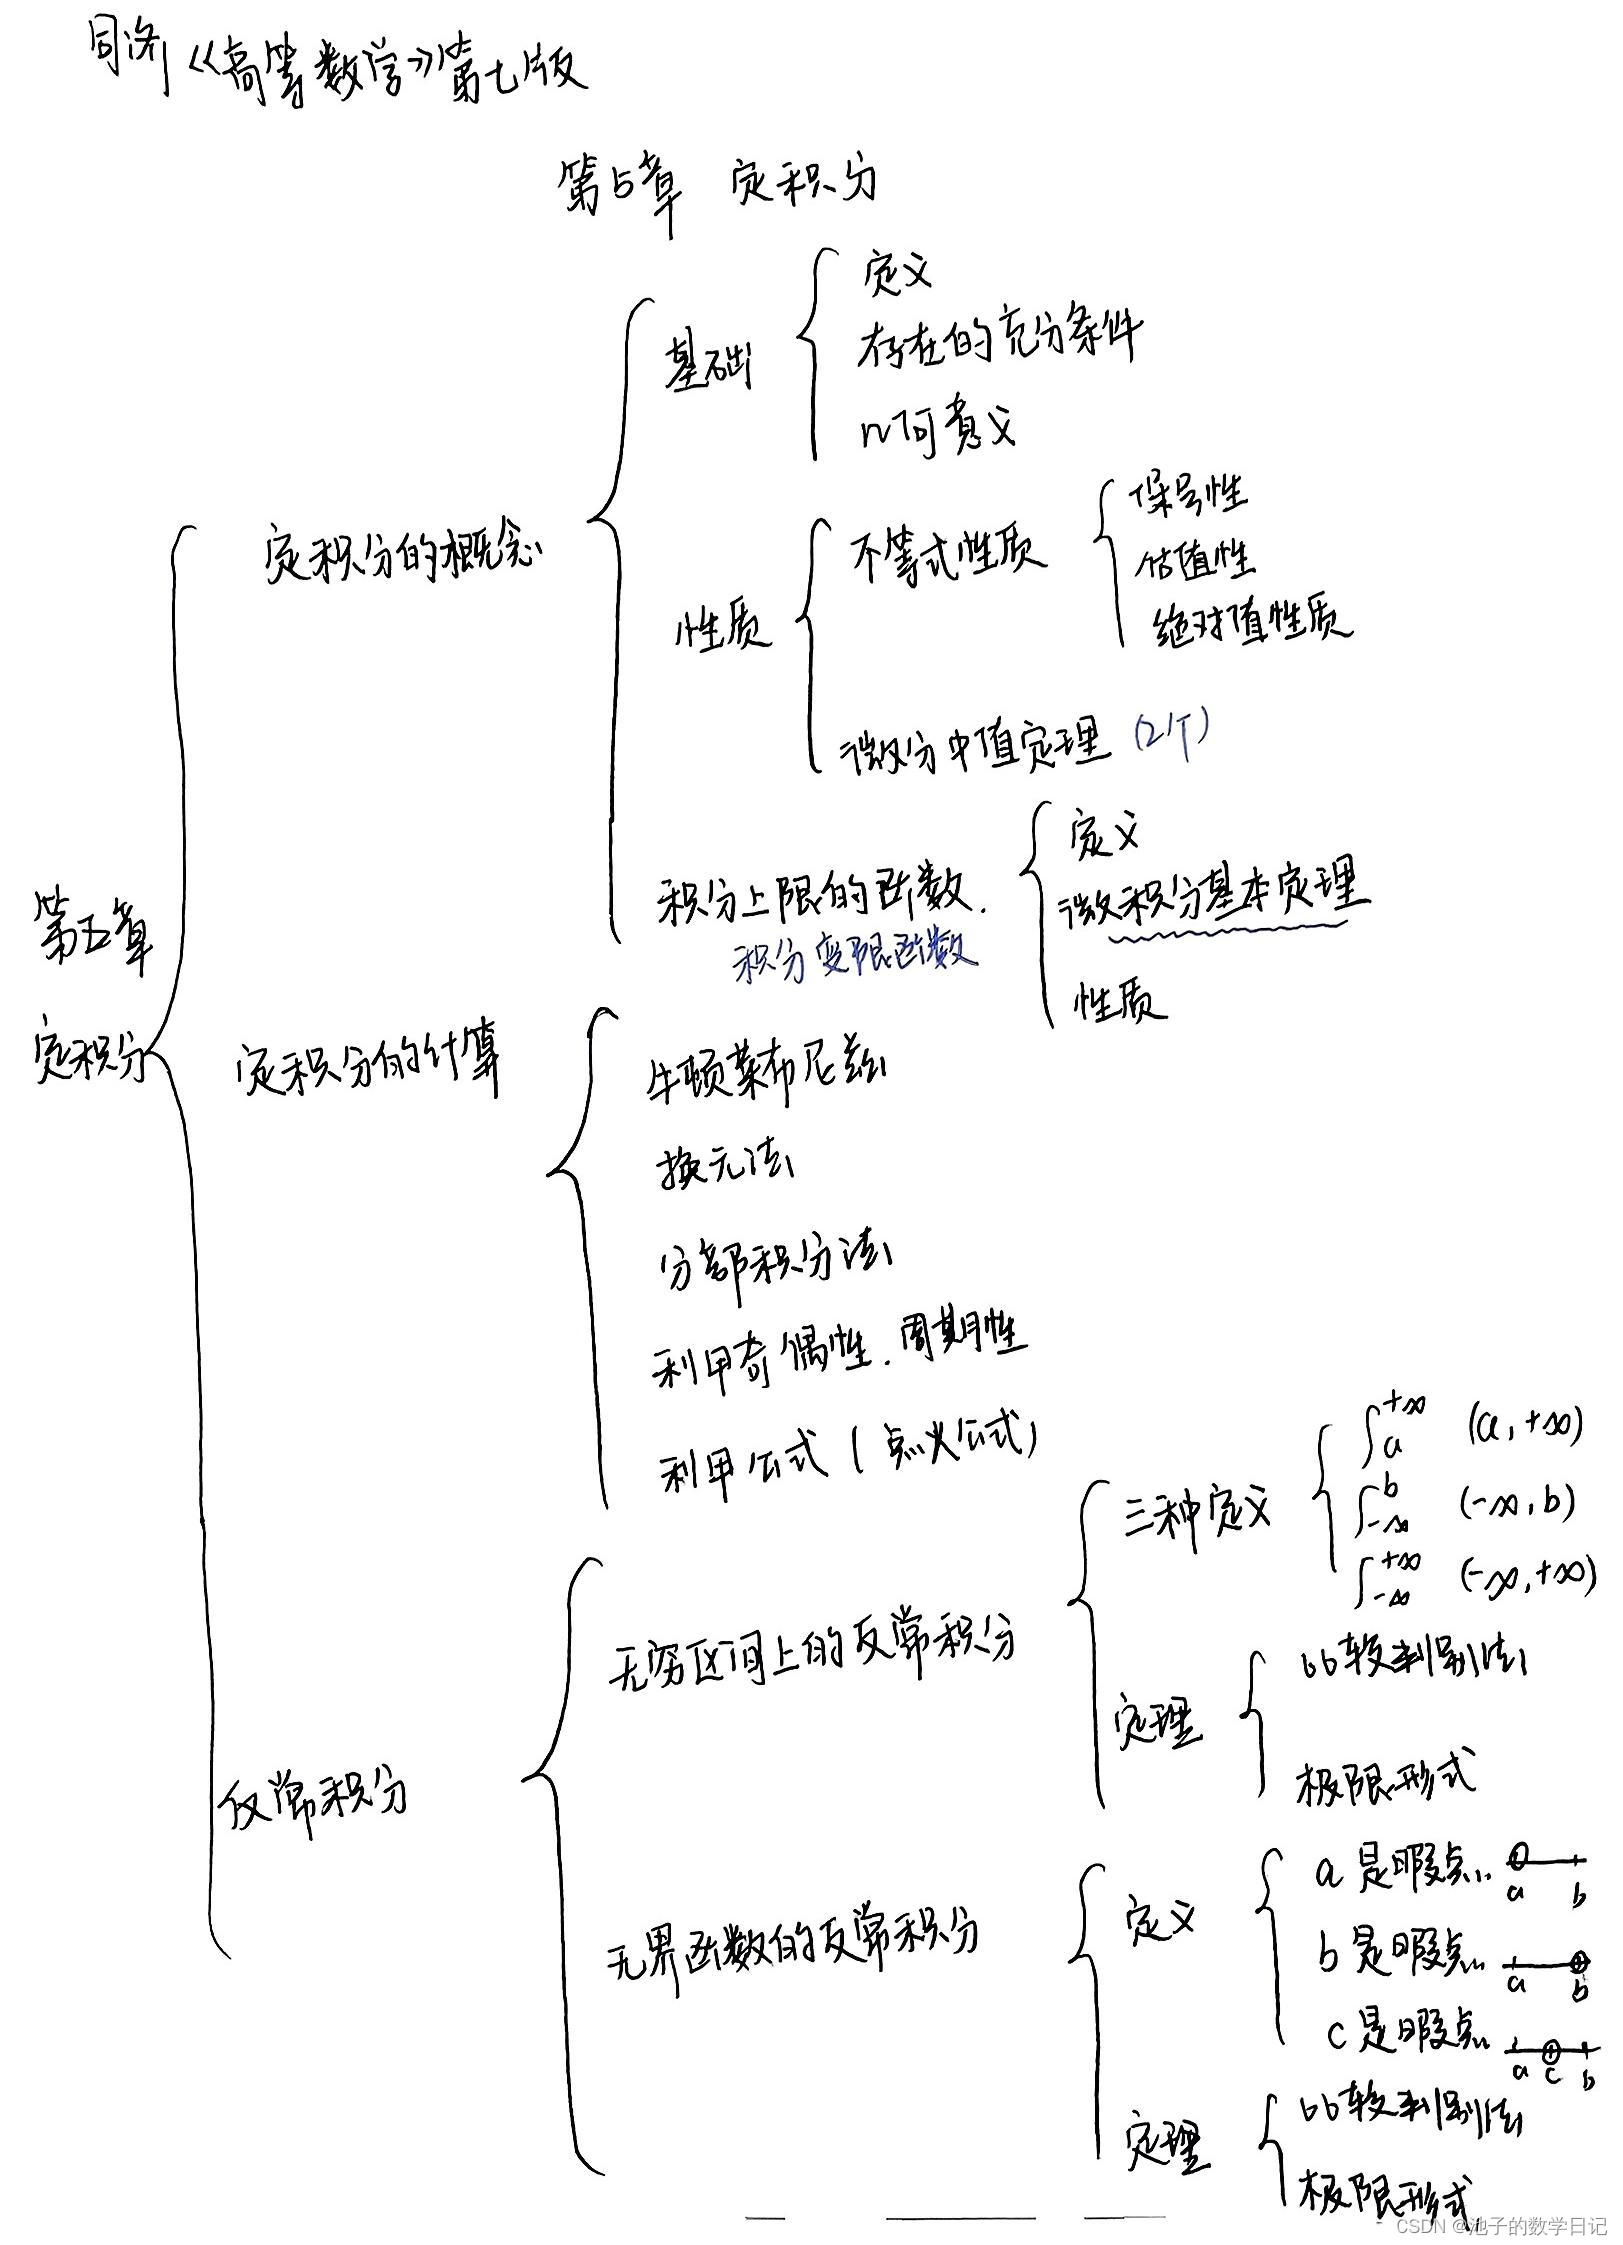 同济《高等数学》第七版
第5章 定积分
第五章
定积分
定积分的概念
基础
定义
存在的充分条件
几何意义
性质
不等式性质
保号性
估值性
绝对值性质
微分中值定理 (2个)
积分上限的函数.
积分变限函数
定义
微积分基本定理
性质
定积分的计算
牛顿莱布尼兹
换元法
分部积分法
利用奇偶性.周期性
利用公式(点火公式)
反常积分
无穷区间上的反常积分
三种定义
∫_a^{+∞} (a,+∞)
∫_{-∞}^b (-∞,b)
∫_{-∞}^{+∞} (-∞,+∞)
定理
比较判别法
极限形式
无界函数的反常积分
定义
a是暇点.. a b
b是暇点.. a b
c是暇点.. a c b
定理
比较判别法
极限形式
CSDN @池子的数学日记